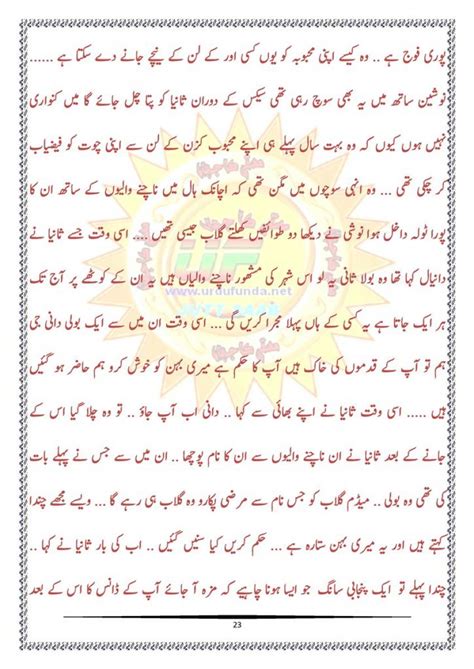 پوری فوج ہے .. وہ کیسے اپنی محبوبہ کو یوں کسی اور کے لن کے نیچے جانے دے سکتا ہے ......
نوشین ساتھ میں یہ بھی سوچ رہی تھی سیکس کے دوران ثانیا کو پتا چل جائے گا میں کنواری
نہیں ہوں کیوں کہ وہ بہت سال پہلے ہی اپنے محبوب کزن کے لن سے اپنی چوت کو فیضیاب
کر چکی تھی ... وہ انہی سوچوں میں مگن تھی کہ اچانک ہال میں ناچنے والیوں کے ساتھ ان کا
پورا ٹولہ داخل ہوا نوشی نے دیکھا دو طوائفیں کھلتے گلاب جیسی تھیں .... اسی وقت جسے ثانیا نے
دانیال کہا تھا وہ بولا ثانی یہ لو اس شہر کی مشہور ناچنے والیاں ہیں یہ ان کے کوٹھے پر آج تک
www.urdufunda.net
ہر ایک جاتا ہے یہ کسی کے ہاں پہلا مجرا کریں گی ... اسی وقت ان میں سے ایک بولی دانی جی
ہم تو آپ کے قدموں کی خاک ہیں آپ کا حکم ہے میری بہن کو خوش کرو ہم حاضر ہو گئیں
ہیں ..... اسی وقت ثانیا نے اپنے بھائی سے کہا .. دانی اب آپ جاؤ .. تو وہ چلا گیا اس کے
جانے کے بعد ثانیا نے ان ناچنے والیوں سے ان کا نام پوچھا .. ان میں سے جس نے پہلے بات
کی تھی وہ بولی .. میڈم گلاب کو جس نام سے مرضی پکارو وہ گلاب ہی رہے گا ... ویسے مجھے چندا
کہتے ہیں اور یہ میری بہن ستارہ ہے ... حکم کریں کیا سنیں گئیں .. اب کی بار ثانیا نے کہا ..
چندا پہلے تو ایک پنجابی سانگ جو ایسا ہونا چاہیے کہ مزہ آ جائے آپ کے ڈانس کا اس کے بعد
23